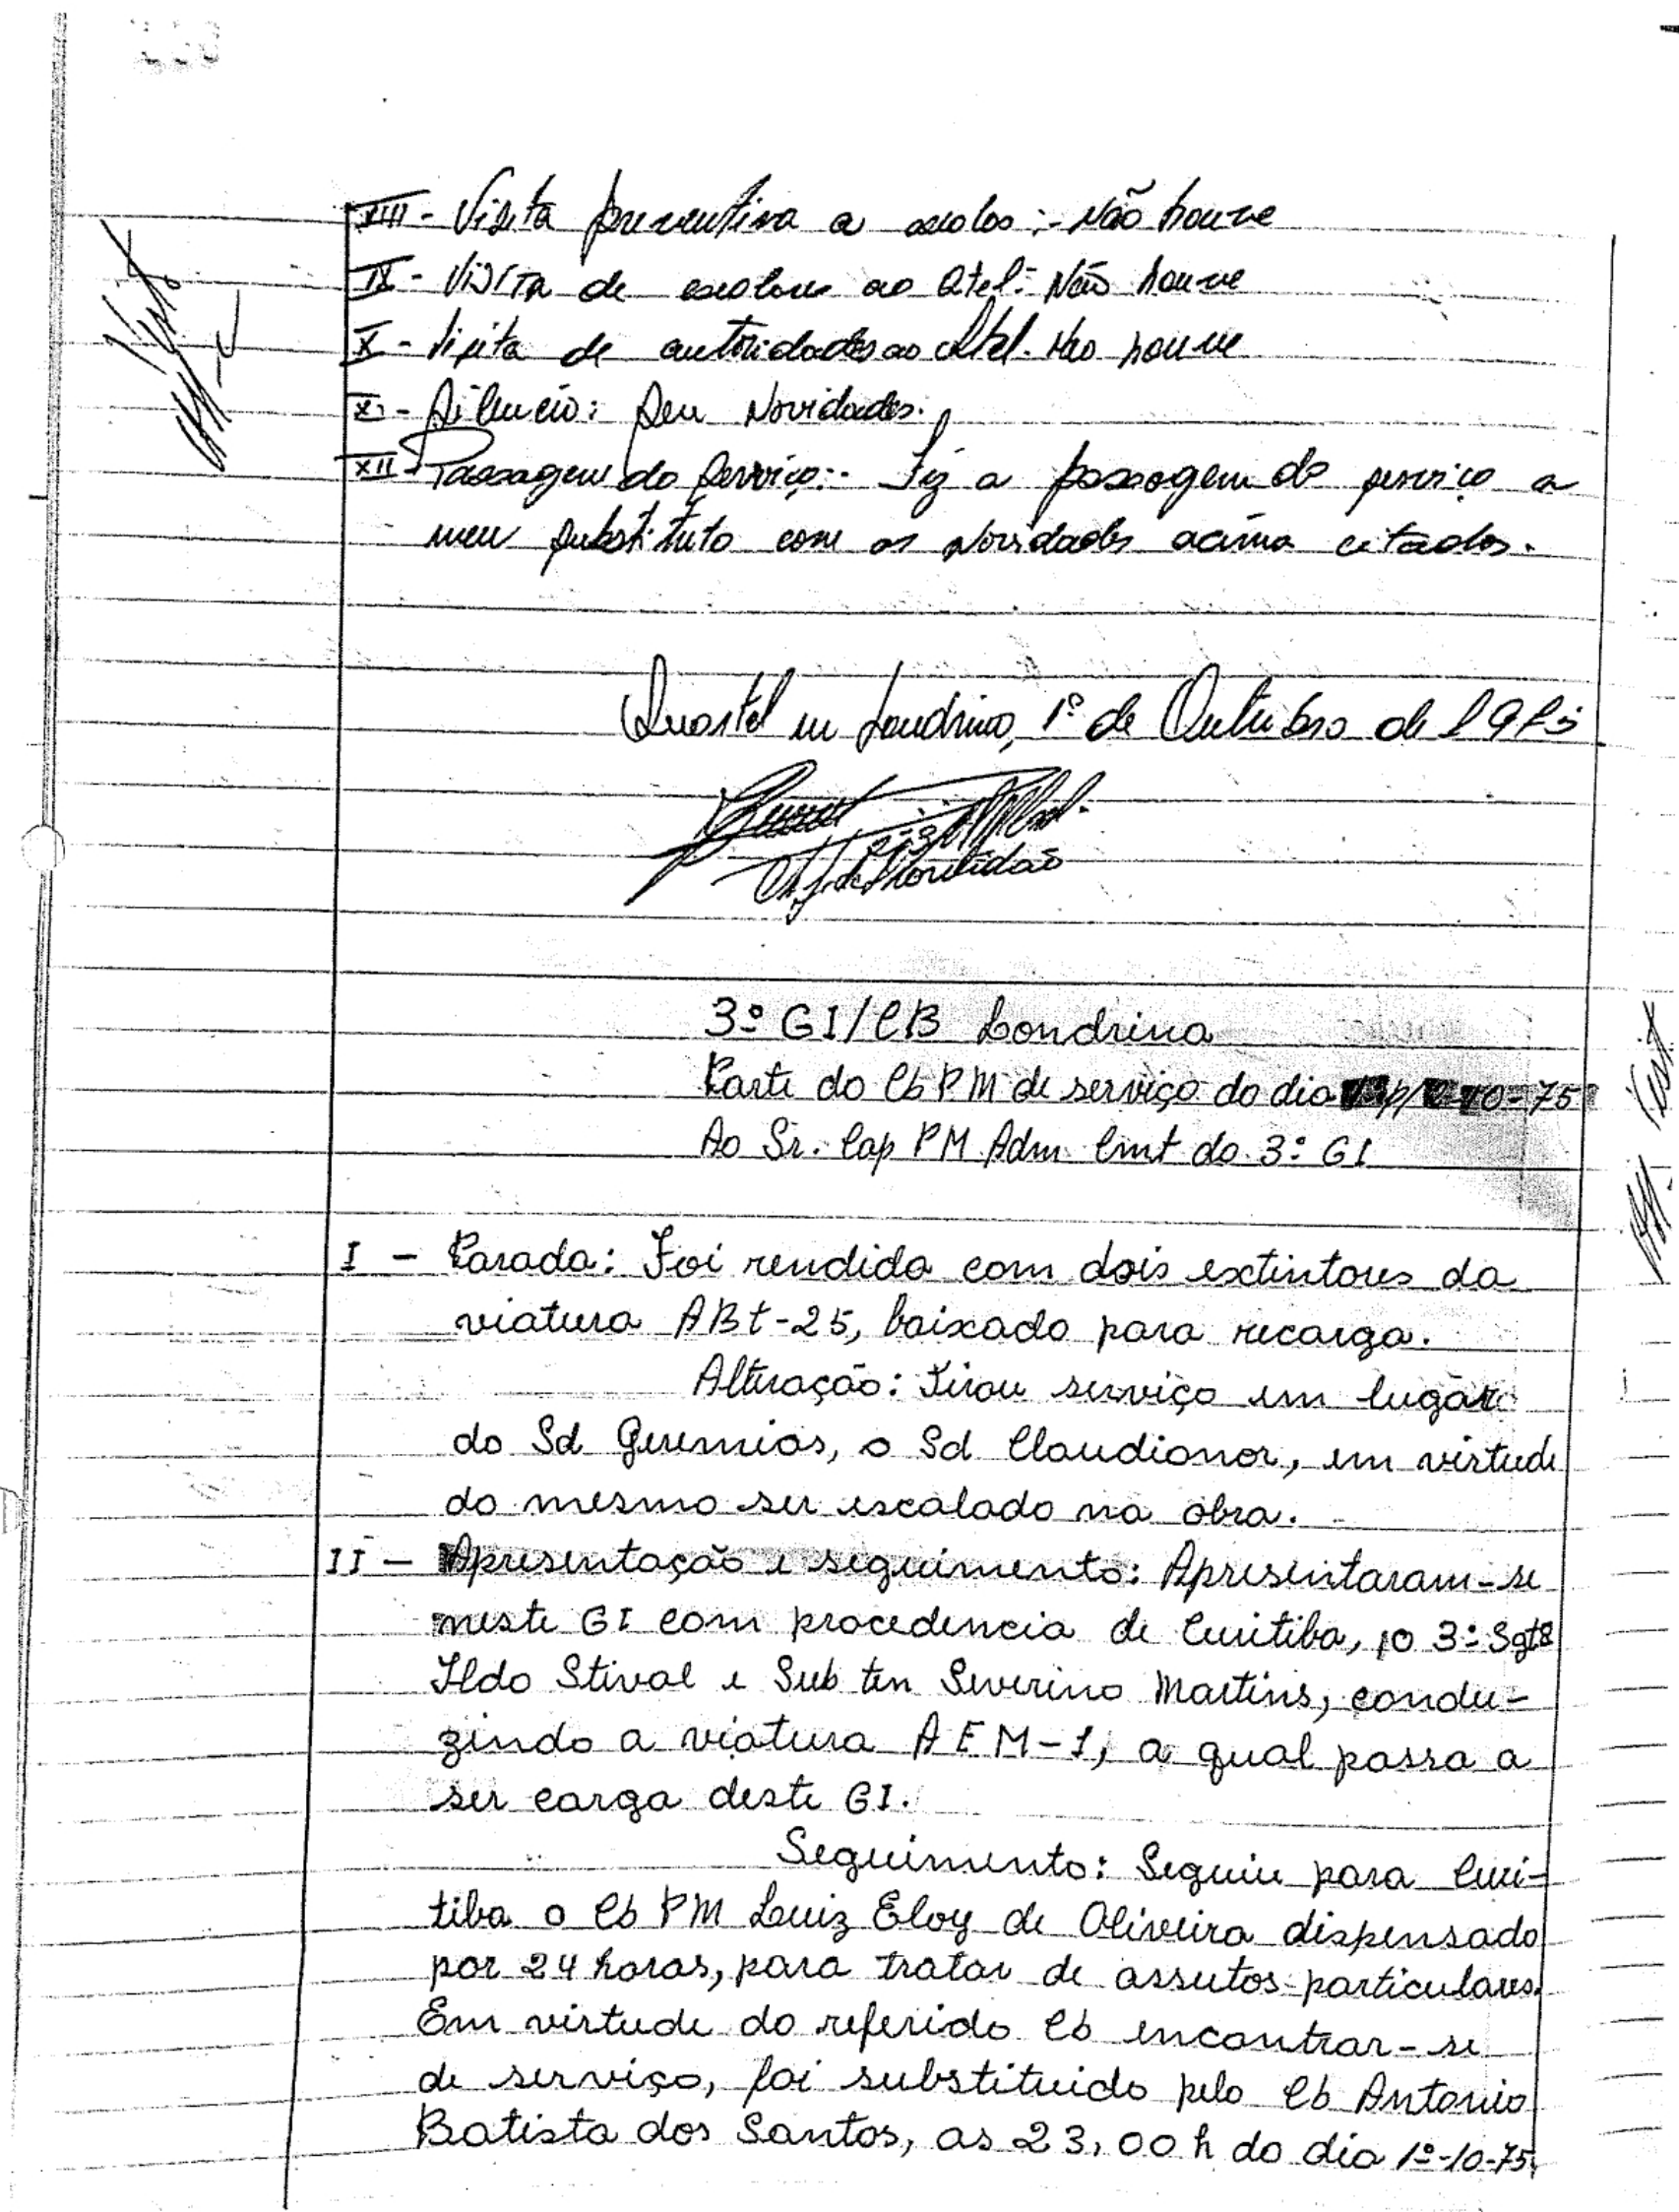 VIII - Visita preventiva a escolas :- Não houve
IX - Visita de escolares ao Qtel:- Não houve
X - Visita de autoridades ao Qtel. Não houve
XI - Silencio: Sem Novidades.
XII - Passagem do Serviço:- Fiz a passagem do serviço a
meu substituto com as novidades acima citadas.
Quartel em Londrina, 1º de Outubro de 1975
3º GI/CB Londrina
Parte do Cb PM de serviço do dia 10-75
Ao Sr. Cap PM Adm Cmt do 3º GI
Visto
Visto
I - Parada: Foi rendida com dois extintores da
viatura ABt-25, baixado para recarga.
Alteração: Tirou serviço em lugar
do Sd Geremias, o Sd Claudionor, em virtude
do mesmo ser escalado na obra.
II - Apresentação e seguimento: Apresentaram-se
neste GI com procedencia de Curitiba, o 3º Sgt
Ildo Stival e Sub ten Severino Martins, condu-
zindo a viatura AEM-1, a qual passa a
ser carga deste GI.
Seguimento: Seguiu para Curi-
tiba o Cb PM Luiz Eloy de Oliveira dispensado
por 24 horas, para tratar de assutos particulares.
Em virtude do referido Cb encontrar-se
de serviço, foi substituido pelo Cb Antonio
Batista dos Santos, as 23,00 h do dia 1º-10-75.